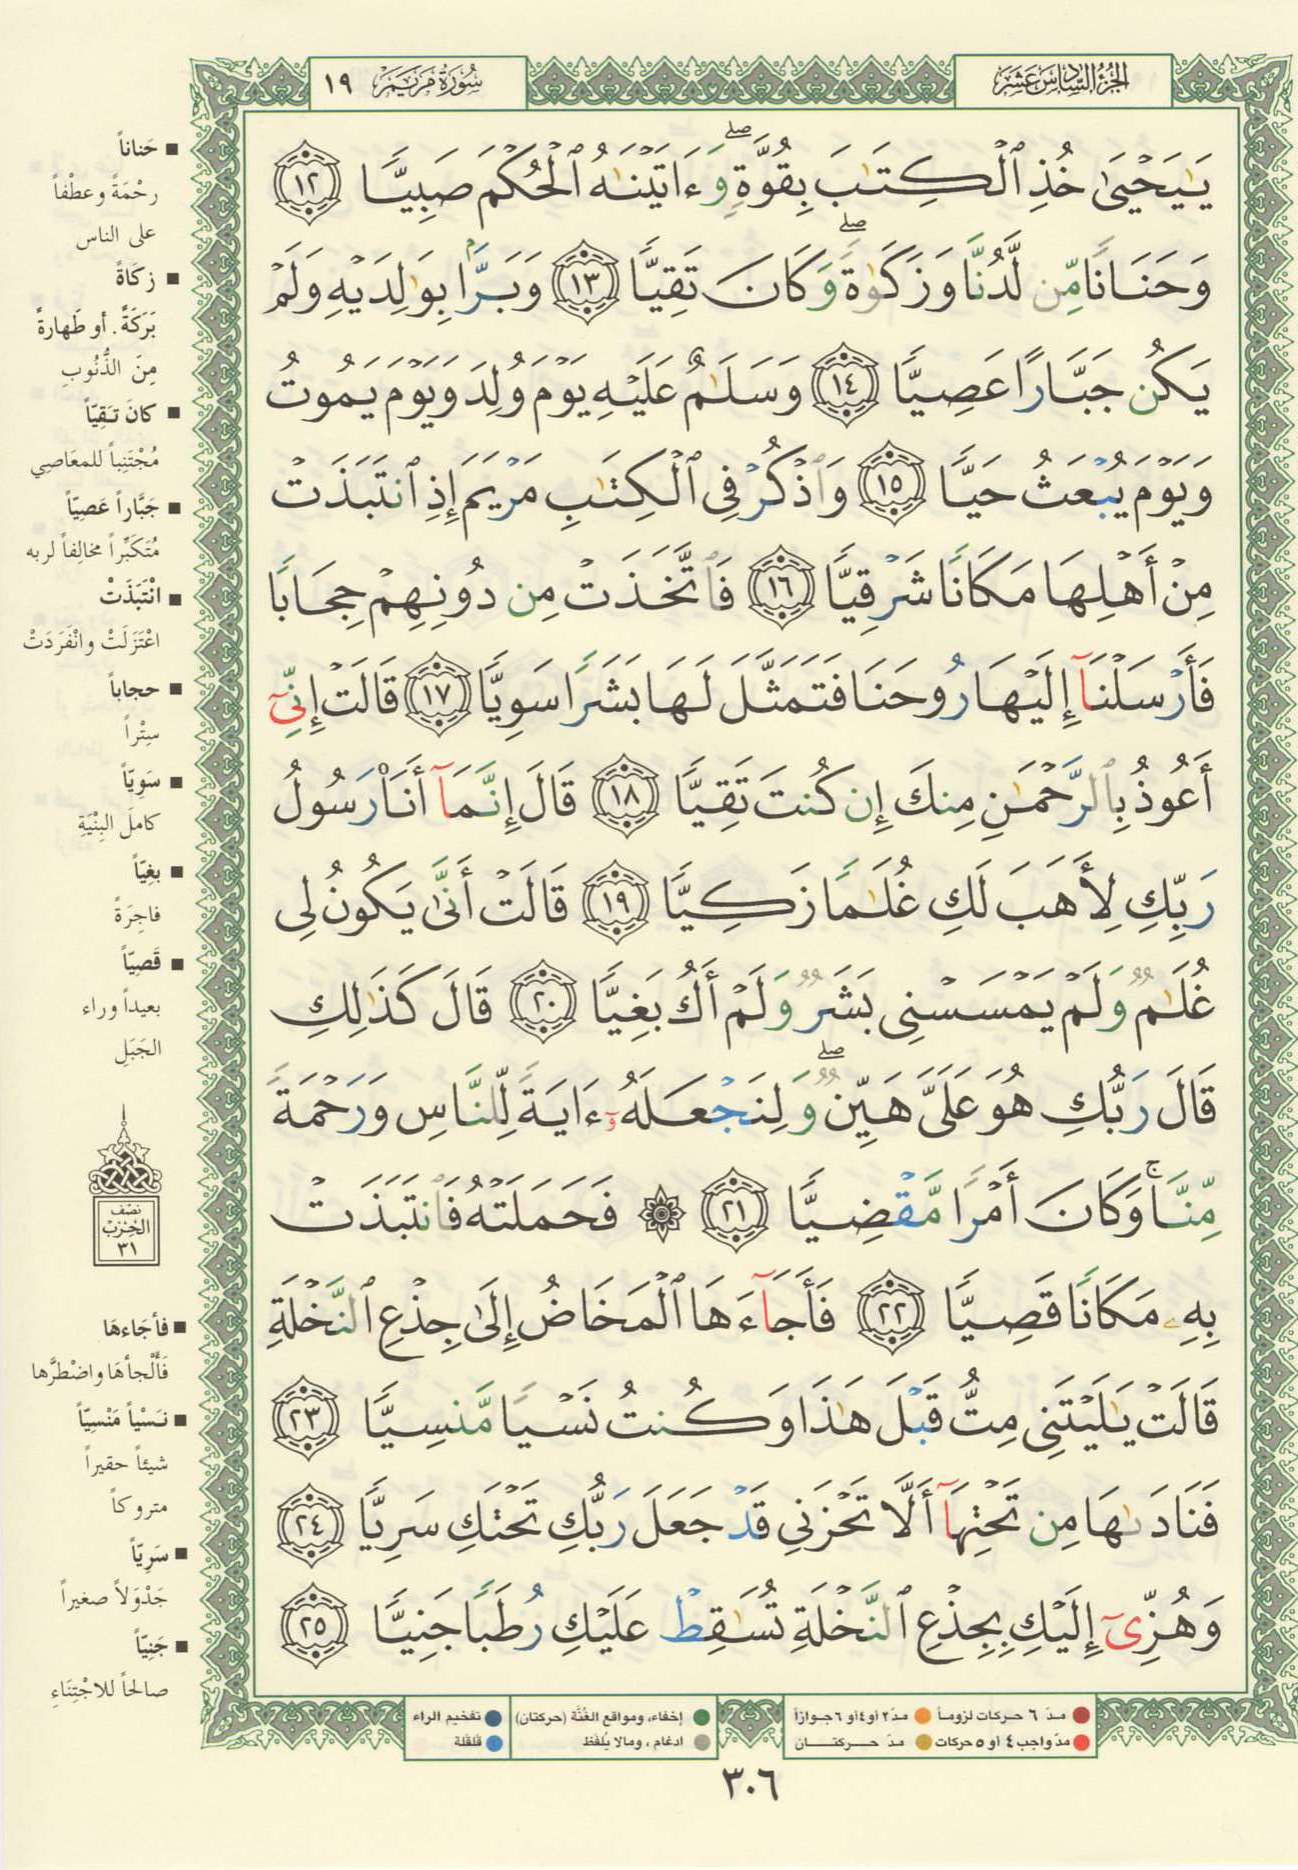 الجزء السادس عشر
سورة مريم ١٩
يَـٰيَحْيَىٰ خُذِ ٱلْكِتَـٰبَ بِقُوَّةٍۢ ۖ وَءَاتَيْنَـٰهُ ٱلْحُكْمَ صَبِيًّۭا ١٢
وَحَنَانًۭا مِّن لَّدُنَّا وَزَكَوٰةًۭ ۖ وَكَانَ تَقِيًّۭا ١٣ وَبَرًّۢا بِوَٰلِدَيْهِ وَلَمْ
يَكُن جَبَّارًا عَصِيًّۭا ١٤ وَسَلَـٰمٌ عَلَيْهِ يَوْمَ وُلِدَ وَيَوْمَ يَمُوتُ
وَيَوْمَ يُبْعَثُ حَيًّۭا ١٥ وَٱذْكُرْ فِى ٱلْكِتَـٰبِ مَرْيَمَ إِذِ ٱنتَبَذَتْ
مِنْ أَهْلِهَا مَكَانًۭا شَرْقِيًّۭا ١٦ فَٱتَّخَذَتْ مِن دُونِهِمْ حِجَابًۭا
فَأَرْسَلْنَآ إِلَيْهَا رُوحَنَا فَتَمَثَّلَ لَهَا بَشَرًۭا سَوِيًّۭا ١٧ قَالَتْ إِنِّىٓ
أَعُوذُ بِٱلرَّحْمَـٰنِ مِنكَ إِن كُنتَ تَقِيًّۭا ١٨ قَالَ إِنَّمَآ أَنَا۠ رَسُولُ
رَبِّكِ لِأَهَبَ لَكِ غُلَـٰمًۭا زَكِيًّۭا ١٩ قَالَتْ أَنَّىٰ يَكُونُ لِى
غُلَـٰمٌۭ وَلَمْ يَمْسَسْنِى بَشَرٌۭ وَلَمْ أَكُ بَغِيًّۭا ٢٠ قَالَ كَذَٰلِكِ
قَالَ رَبُّكِ هُوَ عَلَىَّ هَيِّنٌۭ ۖ وَلِنَجْعَلَهُۥٓ ءَايَةًۭ لِّلنَّاسِ وَرَحْمَةًۭ
مِّنَّا ۚ وَكَانَ أَمْرًۭا مَّقْضِيًّۭا ٢١ ۞ فَحَمَلَتْهُ فَٱنتَبَذَتْ
بِهِۦ مَكَانًۭا قَصِيًّۭا ٢٢ فَأَجَآءَهَا ٱلْمَخَاضُ إِلَىٰ جِذْعِ ٱلنَّخْلَةِ
قَالَتْ يَـٰلَيْتَنِى مِتُّ قَبْلَ هَـٰذَا وَكُنتُ نَسْيًۭا مَّنسِيًّۭا ٢٣
فَنَادَىٰهَا مِن تَحْتِهَآ أَلَّا تَحْزَنِى قَدْ جَعَلَ رَبُّكِ تَحْتَكِ سَرِيًّۭا ٢٤
وَهُزِّىٓ إِلَيْكِ بِجِذْعِ ٱلنَّخْلَةِ تُسَـٰقِطْ عَلَيْكِ رُطَبًۭا جَنِيًّۭا ٢٥
■ حَناناً
رحْمَةً وعطْفاً
على الناس
■ زكَاةً
بَرَكَةً. أو طَهارةً
مِنَ الذُّنُوبِ
■ كانَ تَقِيّاً
مُجْتَنِباً للمعَاصِي
■ جَبَّاراً عَصِيّاً
مُتَكَبِّراً مخالِفاً لربه
■ انْتَبَذَتْ
اعْتَزَلَتْ وانْفَرَدَتْ
■ حجاباً
سِتْراً
■ سَوِيّاً
كاملَ البِنْيَةِ
■ بغِيّاً
فاجِرَةً
■ قَصِيّاً
بعيداً وراء
الجَبَلِ
نصف
الحزب
٣١
■ فأجَاءهَا
فَألْجأهَا واضْطرَّها
■ نَسْياً مَنْسِيّاً
شيئاً حقيراً
متروكاً
■ سَرِيّاً
جَدْوَلاً صغيراً
■ جَنِيّاً
صالحاً للاجْتِنَاءِ
مدّ ٦ حركات لزوماً
مدّ٢ أو٤أو ٦جوازاً
إخفاء، ومواقع الغُنَّة (حركتان)
تفخيم الراء
مدّ واجب ٤ أو ٥ حركات
مدّ حركتان
ادغام ، ومالا يُلفَظ
قلقلة
٣٠٦